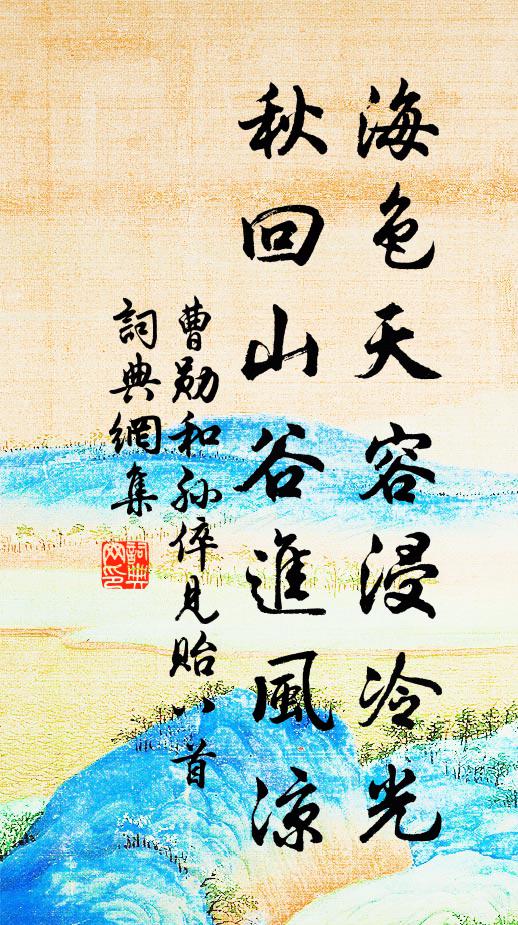 海色天容浸冷光
秋回山谷進風涼
曹勛和孫倅見貽八首
詞典網集
詞典網印